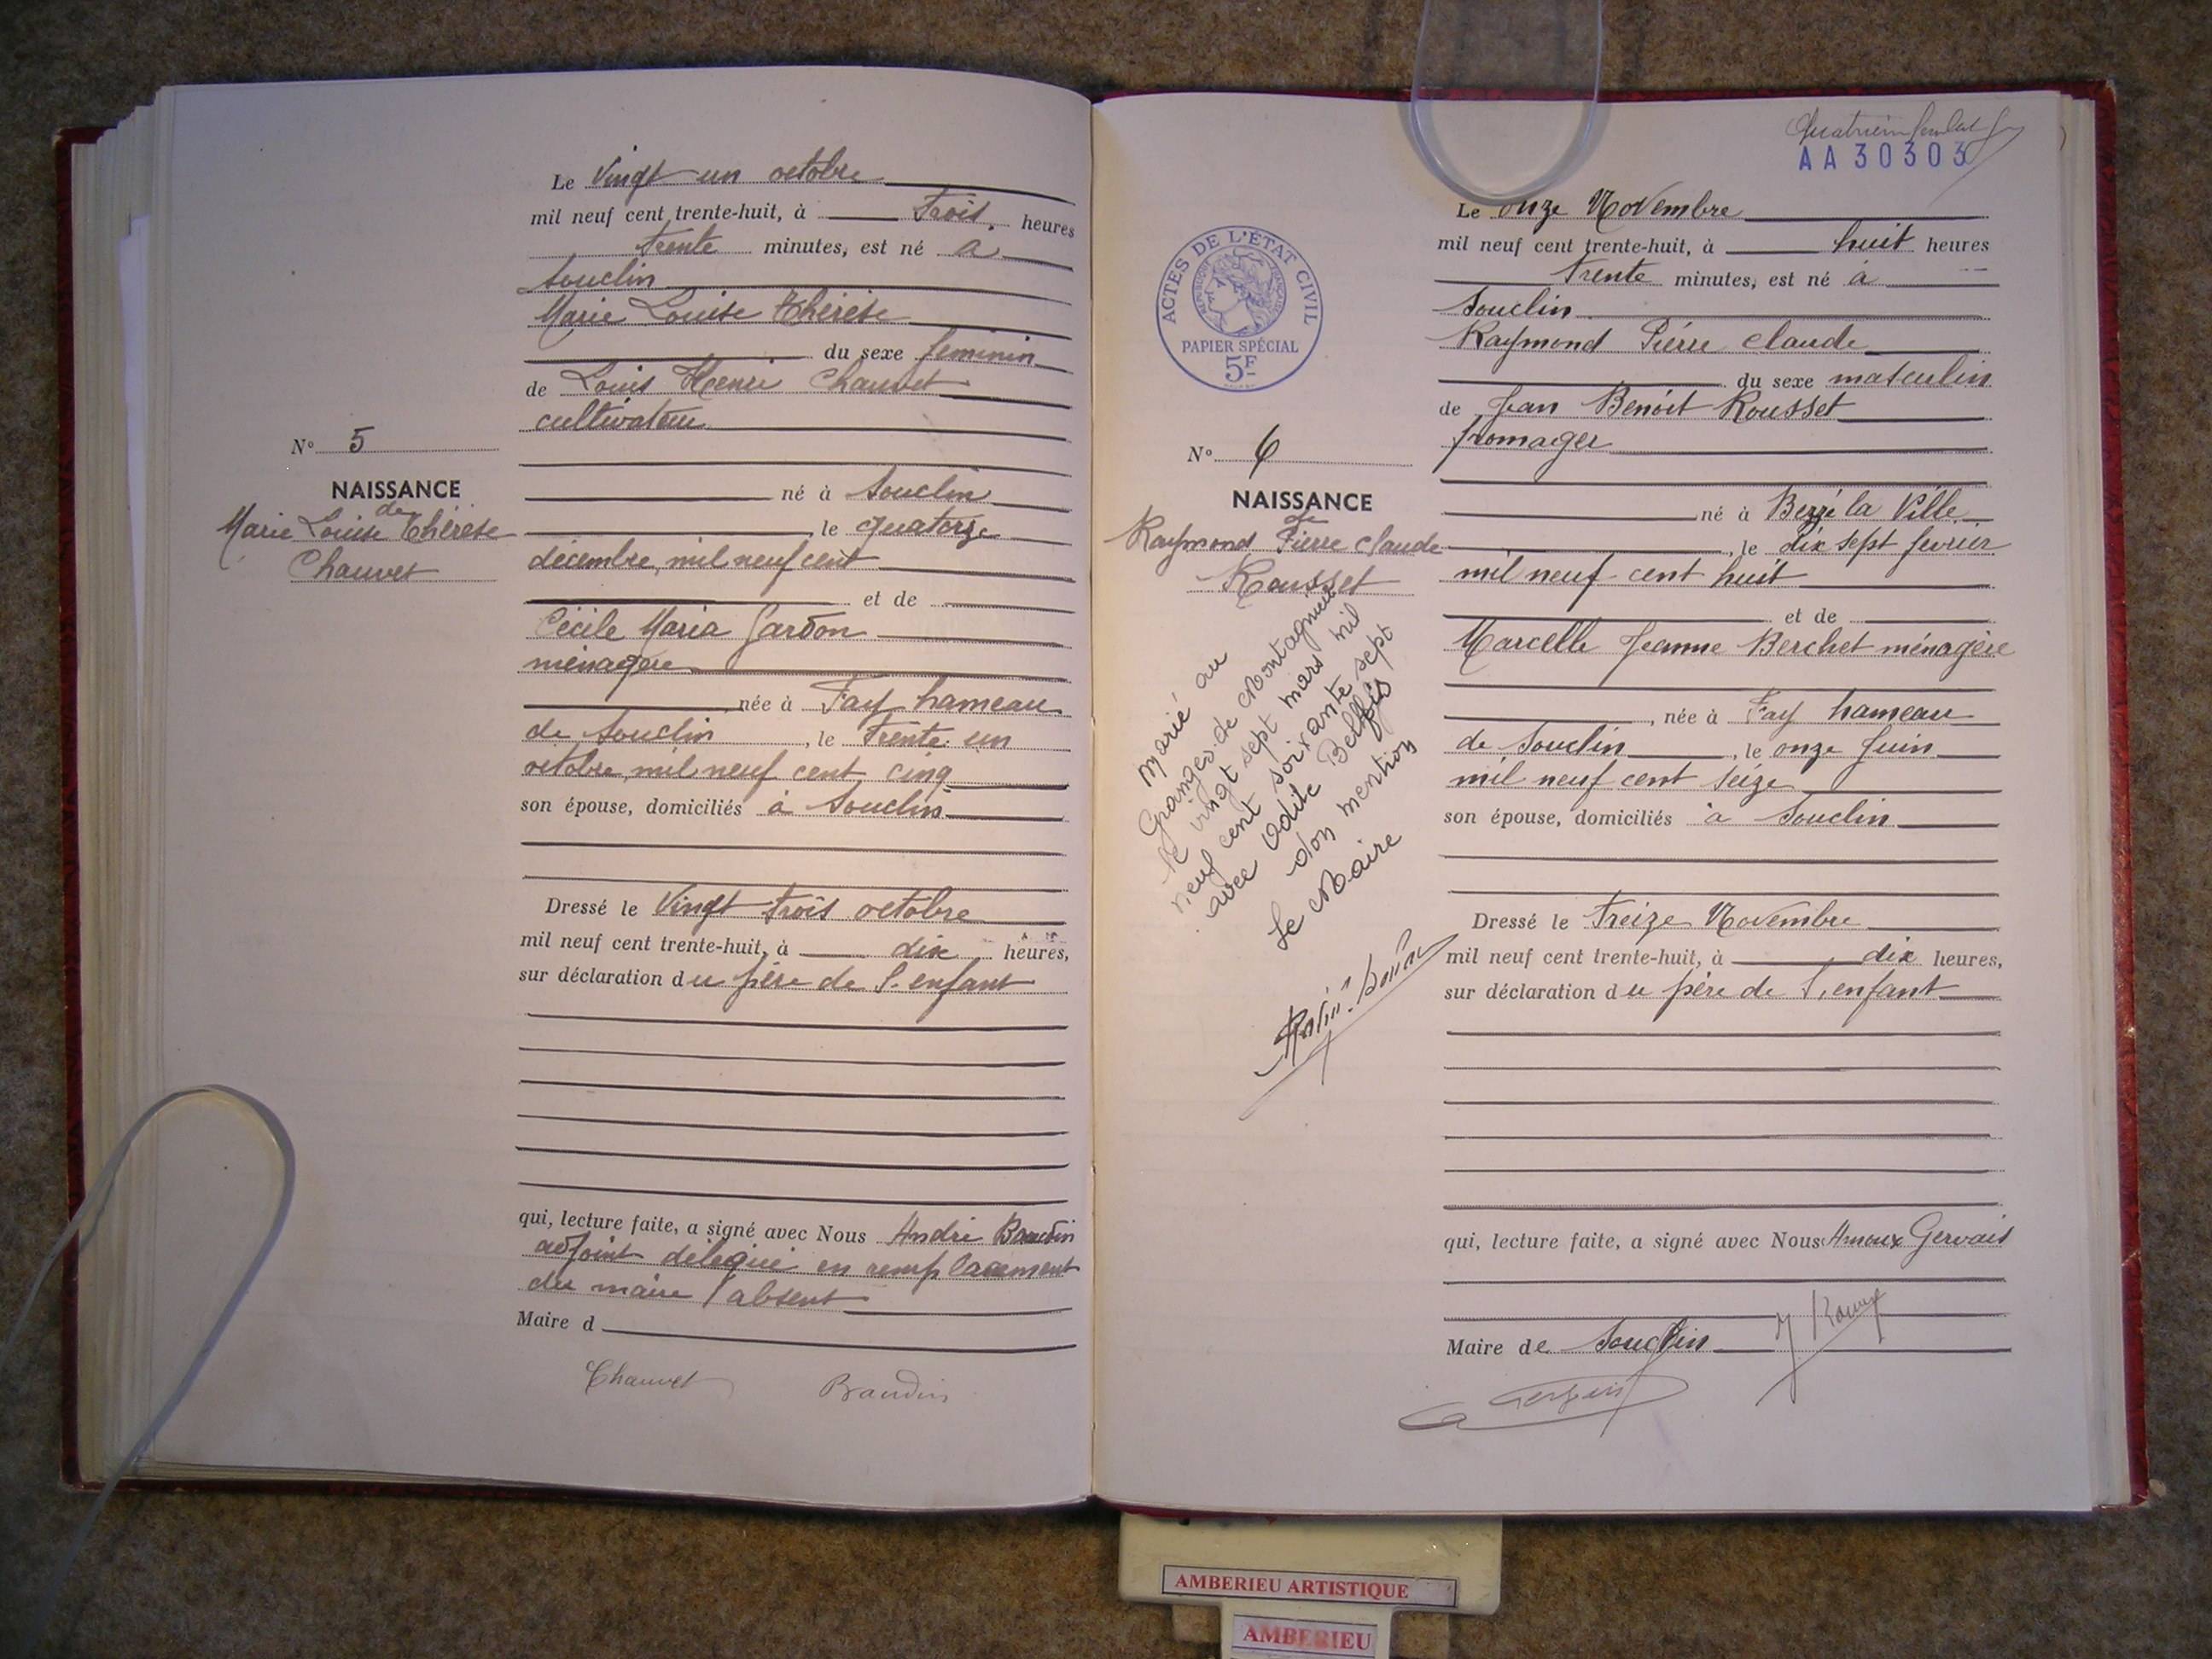 Le Vingt un octobre
mil neuf cent trente-huit, à Trois heures
trente minutes, est né à
Souclin
Marie Louise Thérèse
du sexe féminin
de Louis Henri Chauvet
cultivateur
N° 5
NAISSANCE
de
Marie Louise Thérèse
Chauvet
né à Souclin
, le quatorze
décembre, mil neuf cent
et de
Cécile Maria Gardon
ménagère
, née à Fay hameau
de Souclin, le Trente un
octobre, mil neuf cent cinq
son épouse, domiciliés à Souclin
Dressé le Vingt trois octobre
mil neuf cent trente-huit, à dix heures,
sur déclaration du père de l'enfant
qui, lecture faite, a signé avec Nous André Baudin
adjoint délégué en remplacement
du maire absent
Maire d
Chauvet Baudin
Quatrième
AA 30303
Le onze Novembre
mil neuf cent trente-huit, à huit heures
trente minutes, est né à
Souclin
Raymond Pierre Claude
du sexe masculin
de Jean Benoit Rousset
fromager
ACTES DE L'ÉTAT CIVIL
RÉPUBLIQUE FRANÇAISE
PAPIER SPÉCIAL
5F
N° 6
NAISSANCE
de
Raymond Pierre Claude
Rousset
Marié au
Granges de Montagnieu
le vingt sept mars mil
neuf cent soixante sept
avec Odile
don mention
Le Maire
né à la Ville
, le dix sept février
mil neuf cent huit
et de
Marcelle Jeanne Berchet ménagère
, née à Fay hameau
de Souclin, le onze Juin
mil neuf cent seize
son épouse, domiciliés à Souclin
Dressé le Treize Novembre
mil neuf cent trente-huit, à dix heures,
sur déclaration du père de l'enfant
qui, lecture faite, a signé avec Nous Gervais
Maire de Souclin
AMBERIEU ARTISTIQUE
AMBERIEU